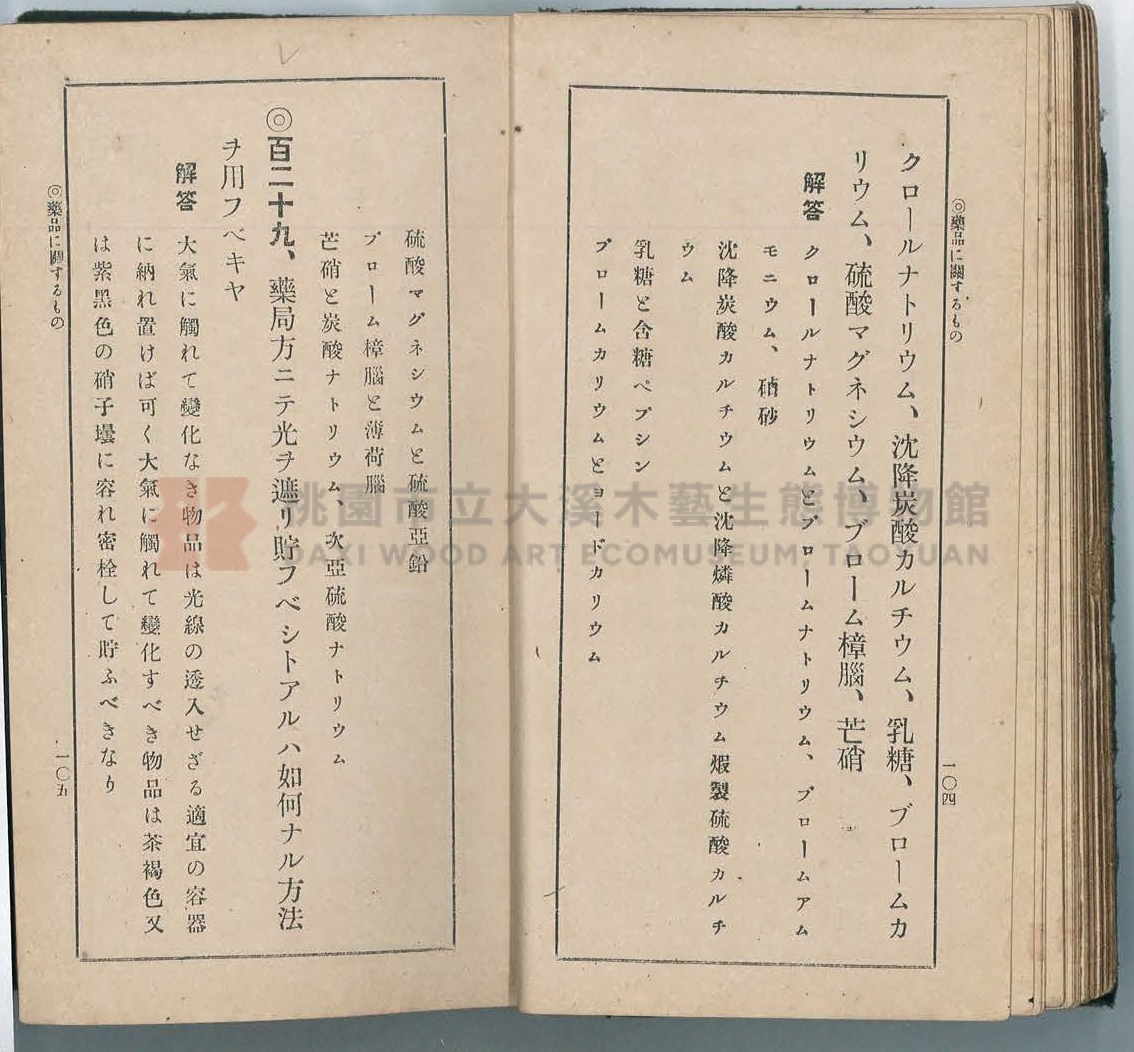 ◎藥品に關するもの
一〇四
クロールナトリウム、沈降炭酸カルチウム、乳糖、ブロームカ
リウム、硫酸マグネシウム、ブローム樟腦、芒硝
解答
クロールナトリウムとブロームナトリウム、ブロームアム
モニウム、硇砂
沈降炭酸カルチウムと沈降燐酸カルチウム煆製硫酸カルチ
ウム
乳糖と含糖ペプシン
ブロームカリウムとヨードカリウム
硫酸マグネシウムと硫酸亞鉛
ブローム樟腦と薄荷腦
芒硝と炭酸ナトリウム、次亞硫酸ナトリウム
◎百二十九、藥局方ニテ光ヲ遮リ貯フベシトアルハ如何ナル方法
ヲ用フベキヤ
解答
大氣に觸れて變化なき物品は光線の透入せざる適宜の容器
に納れ置けば可く大氣に觸れて變化すべき物品は茶褐色又
は紫黑色の硝子壜に容れ密栓して貯ふべきなり
◎藥品に關するもの
一〇五
桃園市立大溪木藝生態博物館
DAXI WOOD ART ECOMUSEUM, TAOYUAN